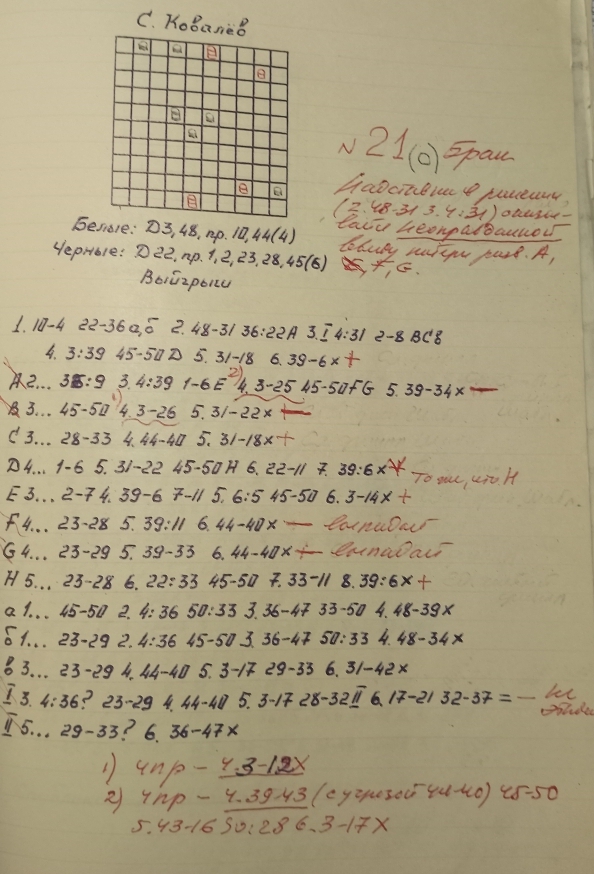 С. Ковалёв
№ 21 (0) Брак
Надставки в решении,
(2. 48-31 3. 4:31)
вать неоправданной
ввиду потери разв. А,
Б, F, G.
Белые: Д3, 48, пр. 10, 44 (4)
Чёрные: Д22, пр. 1, 2, 23, 28, 45 (6)
Выйгрыш
1. 10-4 22-36 а, б 2. 48-31 36:22 А 3. I 4:31 2-8 ВСв
4. 3:39 45-50 D 5. 31-18 6. 39-6х +
А 2... 36:9 3. 4:39 1-6 Е 2) 4. 3-25 45-50 FG 5. 39-34х —
В 3... 45-50 1) 4. 3-26 5. 31-22х —
С 3... 28-33 4. 44-40 5. 31-18х +
D 4... 1-6 5. 31-22 45-50 Н 6. 22-11 7. 39:6х + То же, что Н
Е 3... 2-7 4. 39-6 7-11 5. 6:5 45-50 6. 3-14х +
F 4... 23-28 5. 39:11 6. 44-40х — выпадает
G 4... 23-29 5. 39-33 6. 44-40х — выпадает
Н 5... 23-28 6. 22:33 45-50 7. 33-11 8. 39:6х +
а 1... 45-50 2. 4:36 50:33 3. 36-47 33-50 4. 48-39х
б 1... 23-29 2. 4:36 45-50 3. 36-47 50:33 4. 48-34х
в 3... 23-29 4. 44-40 5. 3-17 29-33 6. 31-42х
I 3. 4:36? 23-29 4. 44-40 5. 3-17 28-32 II 6. 17-21 32-37 = —
II 5... 29-33? 6. 36-47х
1) ЧПР — 4. 3-12Х
2) ЧПР — 4. 39-43 (с угрозой 44-40) 45-50
5. 43-16 50:28 6. 3-17Х